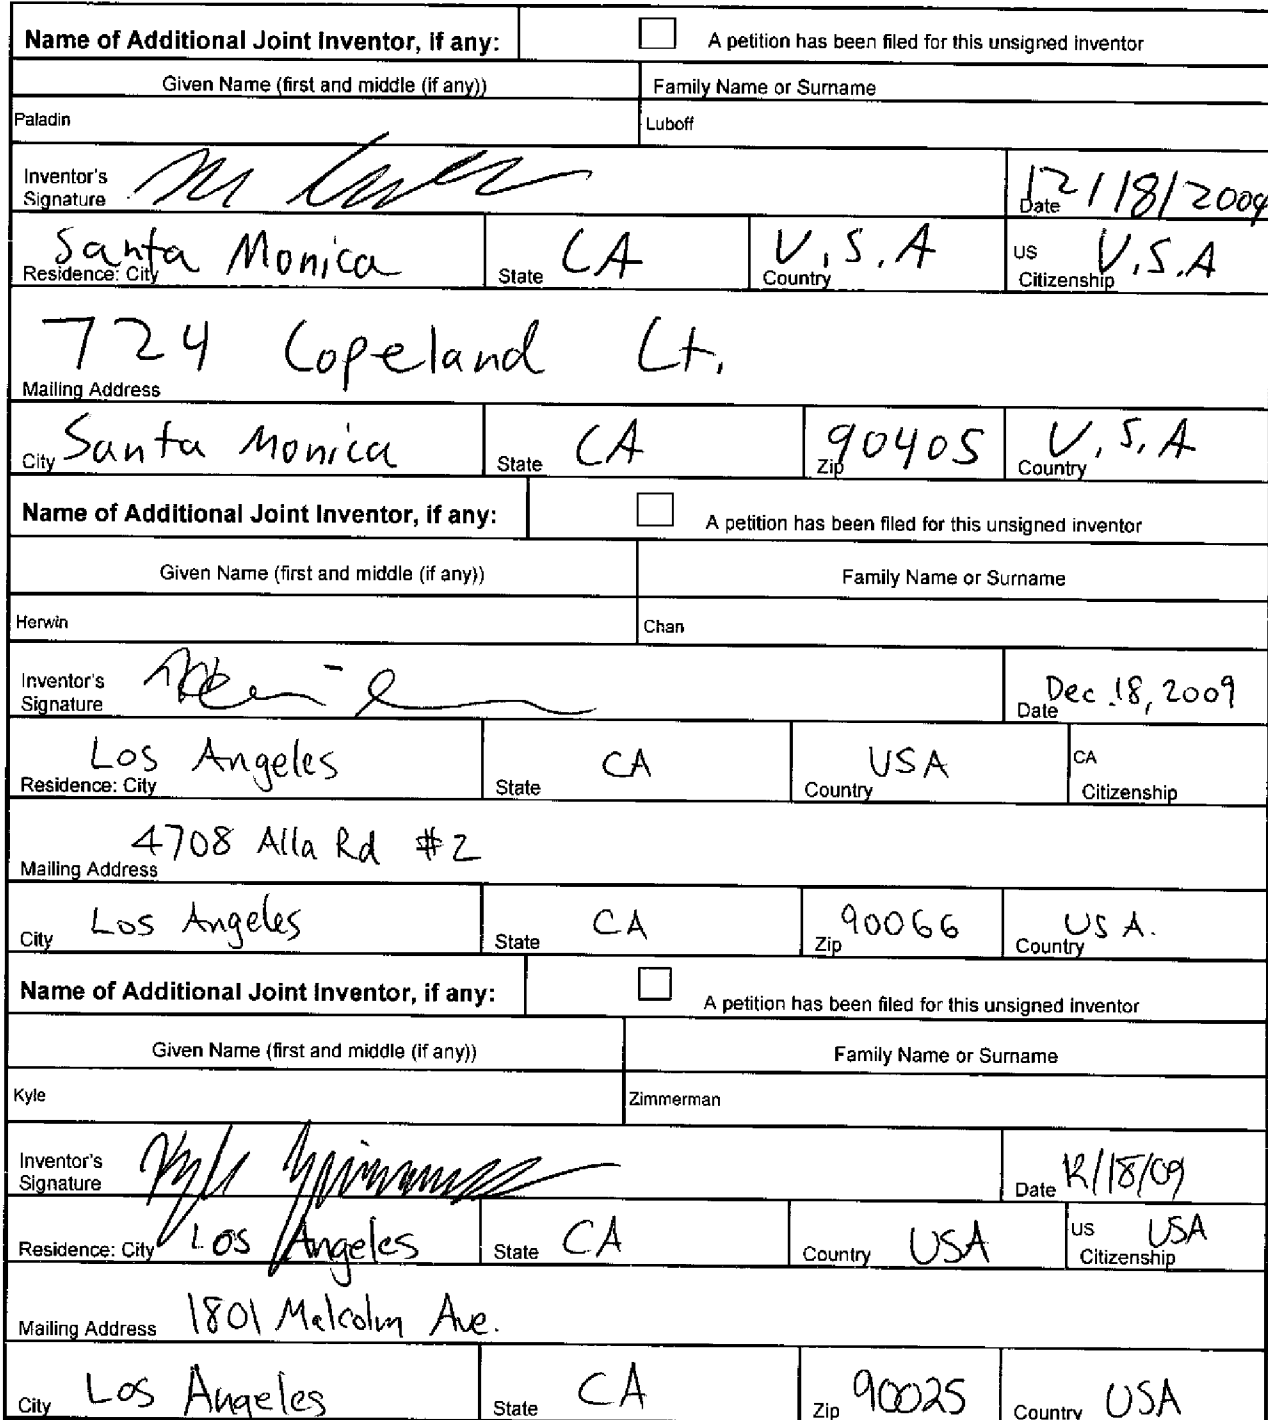 Name of Additional Joint Inventor, if any: A petition has been filed for this unsigned inventor
Given Name (first and middle (if any)) Family Name or Surname
Paladin Luboff
Inventor's
Signature Date 12/18/2009
Residence: City Santa Monica State CA Country U.S.A US Citizenship U.S.A
724 Copeland Ct.
Mailing Address
City Santa Monica State CA Zip 90405 Country U.S.A
Name of Additional Joint Inventor, if any: A petition has been filed for this unsigned inventor
Given Name (first and middle (if any)) Family Name or Surname
Herwin Chan
Inventor's
Signature Date Dec 18, 2009
Residence: City Los Angeles State CA Country USA CA Citizenship
4708 Alla Rd #2
Mailing Address
City Los Angeles State CA Zip 90066 Country USA.
Name of Additional Joint Inventor, if any: A petition has been filed for this unsigned inventor
Given Name (first and middle (if any)) Family Name or Surname
Kyle Zimmerman
Inventor's
Signature Kyle Zimmerman Date 12/18/09
Residence: City Los Angeles State CA Country USA US Citizenship USA
Mailing Address 1801 Malcolm Ave.
City Los Angeles State CA Zip 90025 Country USA